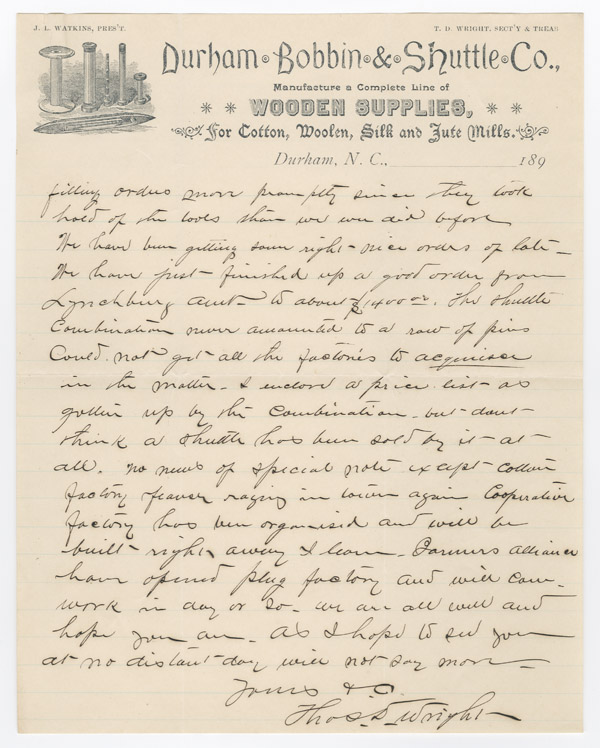 J. L. WATKINS, PRES'T.
T. D. WRIGHT, SECT'Y & TREAS
Durham Bobbin & Shuttle Co.,
Manufacture a Complete Line of
WOODEN SUPPLIES,
For Cotton, Woolen, Silk and Jute Mills.
Durham, N. C., 189
filling orders more promptly since they took
hold of the tools than we ever did before
We have been getting some right nice orders of late-
We have just finished up a good order from
Lynchburg amt- to about $1400.00. The shuttle
Combination never amounted to a row of pins
Could not get all the factories to acquiesce
in the matter- I enclose a price list as
gotten up by the Combination- but dont-
think a shuttle has been sold by it at-
all. no news of special note except cotton
factory feaver raging in town again Cooperative
factory has ben organised and will be
built- right away I learn- Farmers alliance
have opened plug factory and will com-
work in day or so- we are all well and
hope you are- As I hope to see you
at no distant day will not say more-
Yours &c.
Thos. D. Wright-